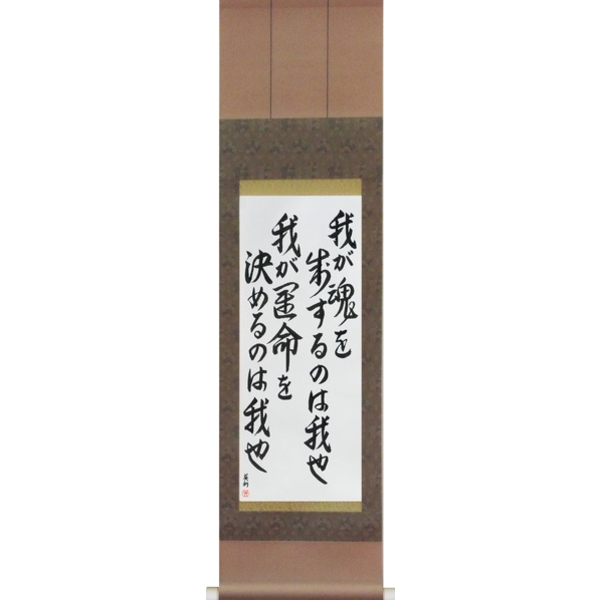 我が魂を
制するのは我也
我が運命を
決めるのは我也